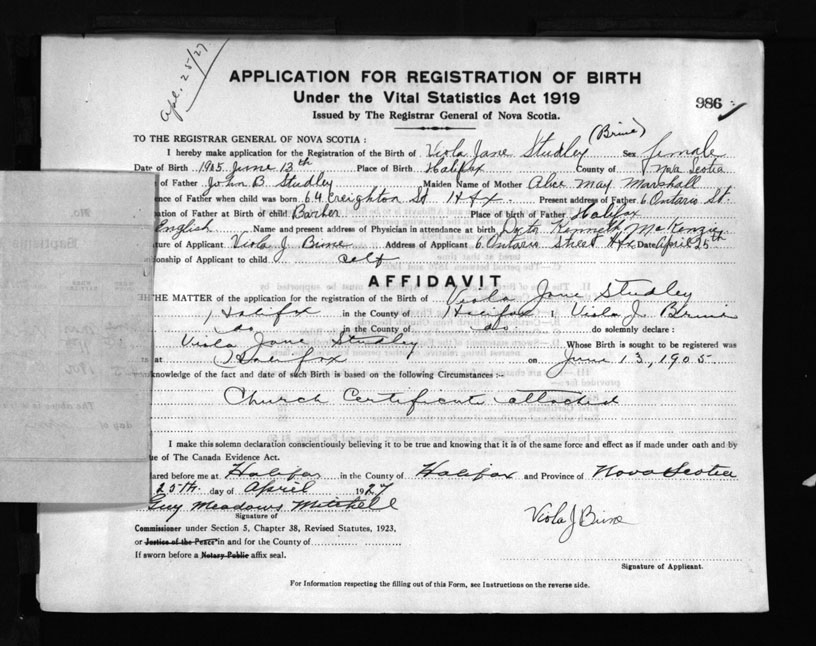 Apl. 25/27
APPLICATION FOR REGISTRATION OF BIRTH
Under the Vital Statistics Act 1919
986
Issued by The Registrar General of Nova Scotia.
(Brine)
TO THE REGISTRAR GENERAL OF NOVA SCOTIA :
I hereby make application for the Registration of the Birth of Viola Jane Studley Sex female
Date of Birth 1905 June 13th Place of Birth Halifax County of Nova Scotia
of Father John B. Studley Maiden Name of Mother Alice May Marshall
nce of Father when child was born 64 Creighton St Hfx. Present address of Father 6 Ontario St.
ation of Father at Birth of child Barber Place of birth of Father Halifax
English Name and present address of Physician in attendance at birth Kenneth McKenzie
ture of Applicant Viola J Brine Address of Applicant 6 Ontario Street Hfx Date April 25th
ionship of Applicant to child self
AFFIDAVIT
THE MATTER of the application for the registration of the Birth of Viola Jane Studley
Halifax in the County of Halifax I, Viola J. Brine
do in the County of do do solemnly declare :
Viola Jane Studley Whose Birth is sought to be registered was
at Halifax on June 13, 1905
knowledge of the fact and date of such Birth is based on the following Circumstances :-
Church Certificate attached
I make this solemn declaration conscientiously believing it to be true and knowing that it is of the same force and effect as if made under oath and by
ue of The Canada Evidence Act.
lared before me at Halifax in the County of Halifax and Province of Nova Scotia
25th day of April 1927
Guy Meadows Mitchell
Signature of
Viola J Brine
Commissioner under Section 5, Chapter 38, Revised Statutes, 1923,
or Justice of the Peace in and for the County of
If sworn before a Notary Public affix seal.
Signature of Applicant.
For Information respecting the filling out of this Form, see Instructions on the reverse side.